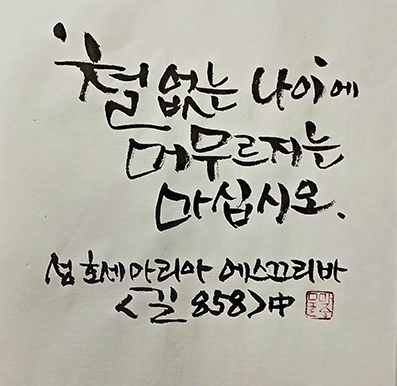 "철 없는 나이에
머무르지는
마십시오.
성 호세마리아 에스끄리바
<길 858>中